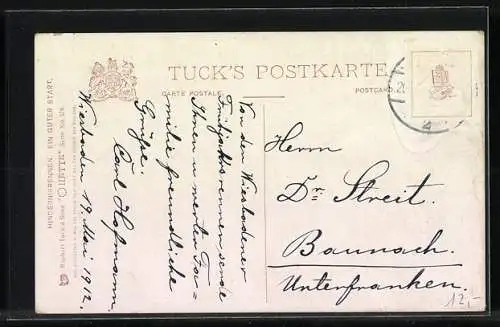 TUCK'S POSTKARTE
CARTE POSTALE
POSTCARD
HINDERNISRENNEN. EIN GUTER START.
Raphael Tuck & Sons "OILETTE" Serie No.
Von den Wiesbadener
Frühjahrsrennen sende
Ihnen u werten Fa-
milie freundliche
Grüsse.
Carl Hofmann.
Wiesbaden 19 Mai 1912.
Herrn
Dr Streit.
Baunach.
Unterfranken.
12,-